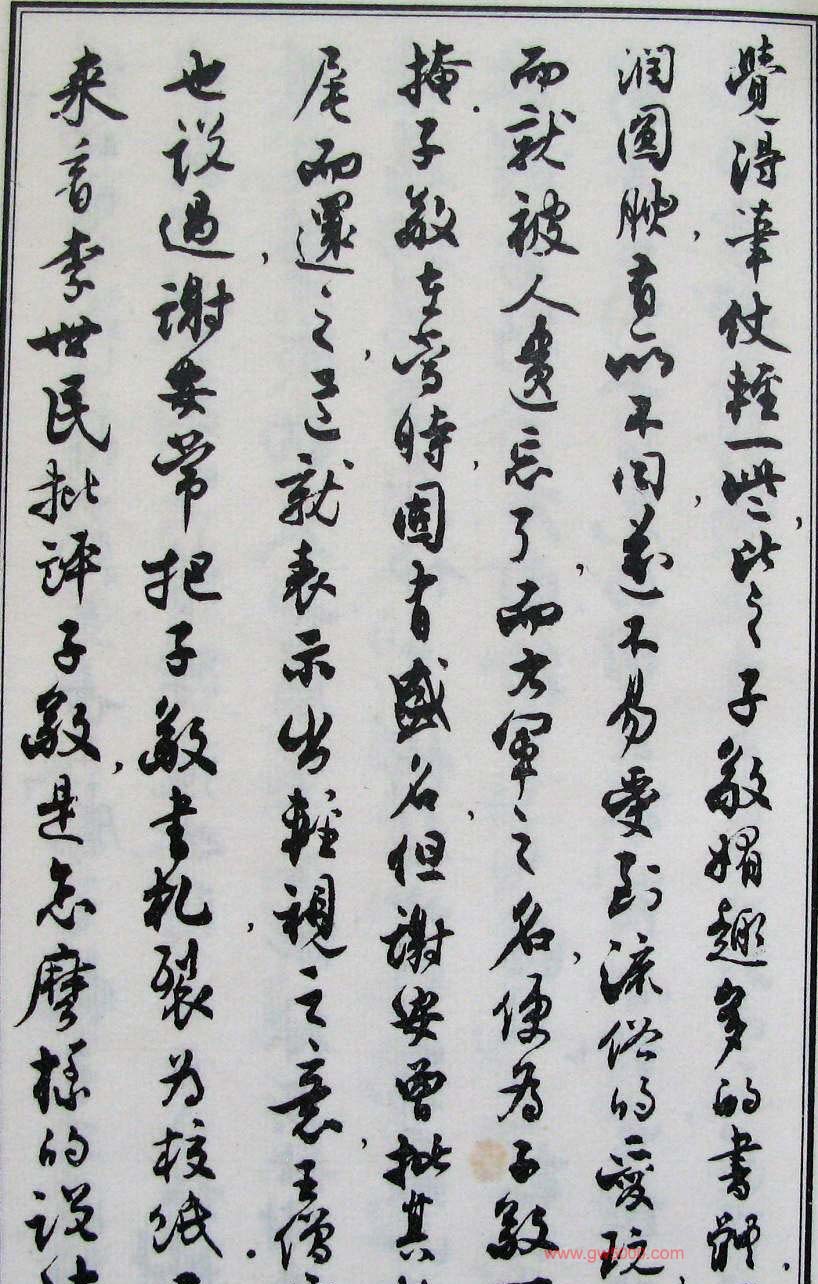 覺得筆仗輕一些,比之子敬媚趣多的書體.
潤圓腴,有所不同,遂不易受到流俗的愛玩
而就被人遺忘了,而右軍之名,便為子敬
掩.子敬在當時,固有盛名,但謝安曾批其
尾而還之,這就表示出輕視之意,王僧
也說過,謝安常把子敬書札,裂為校紙.
來看李世民批評子敬,是怎麼樣的說
www.gw8000.com